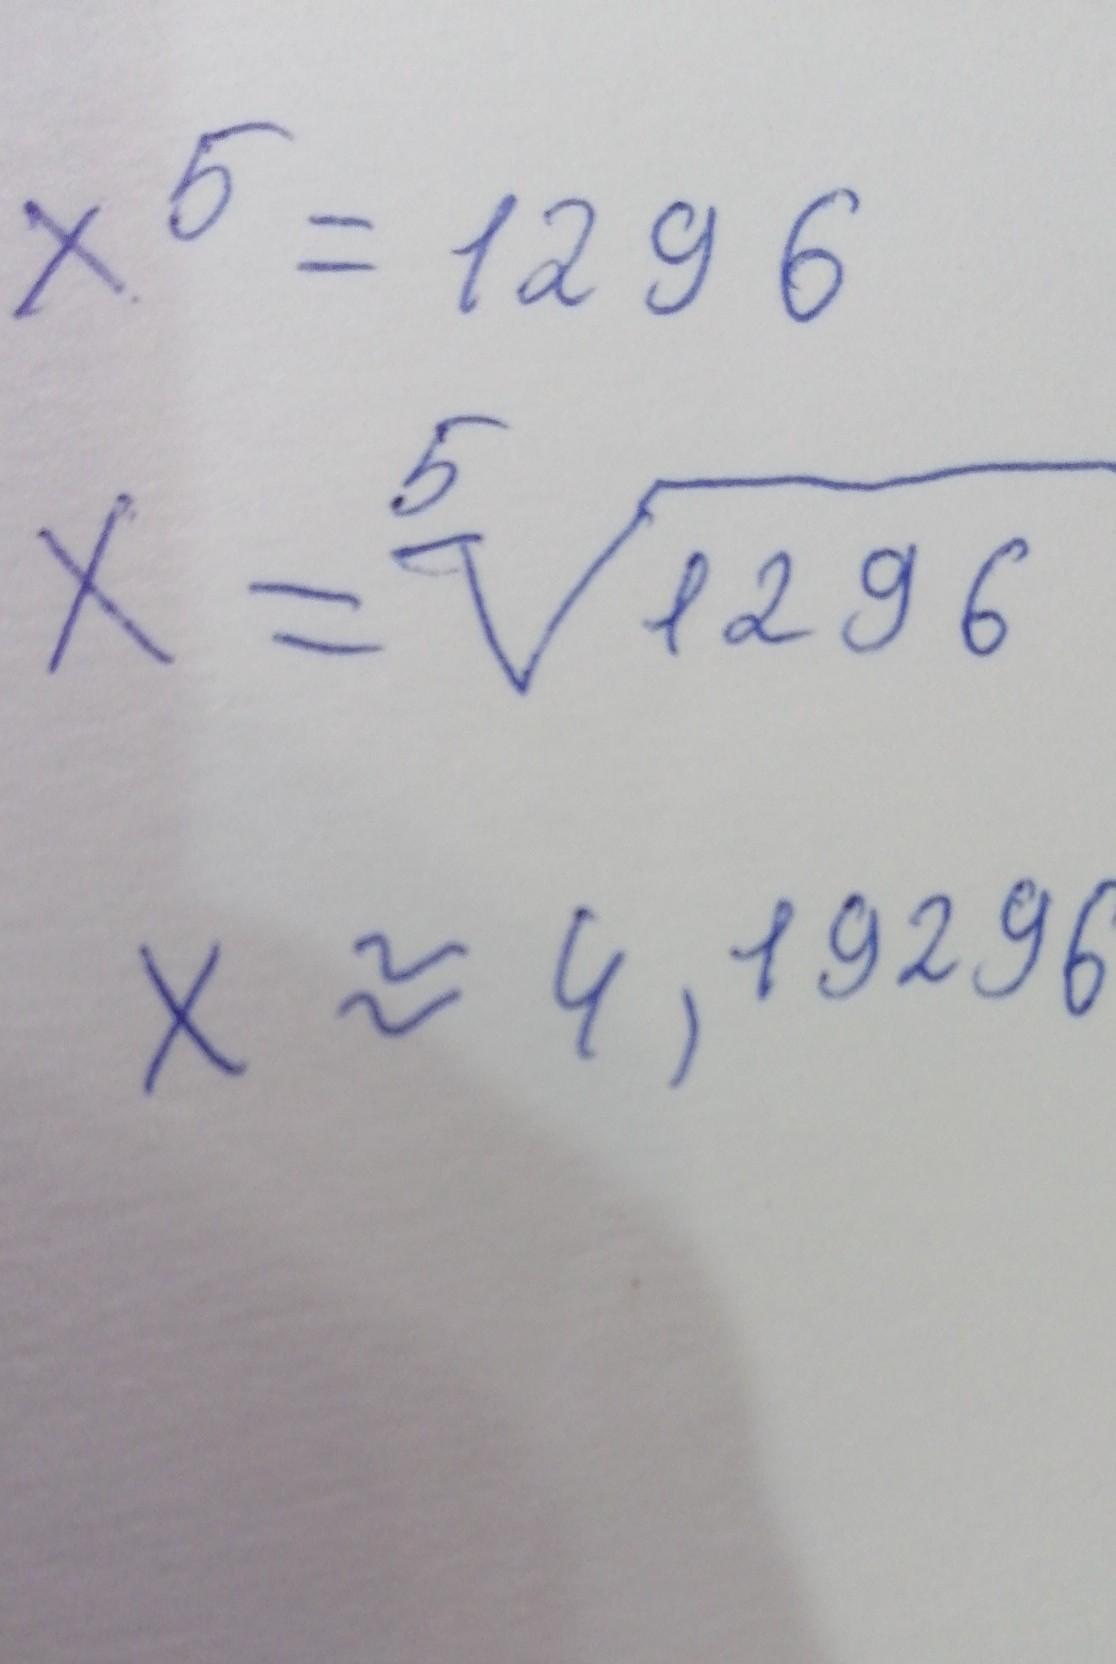 x⁵ = 1296
x = ⁵√1296
x ≈ 4,19296